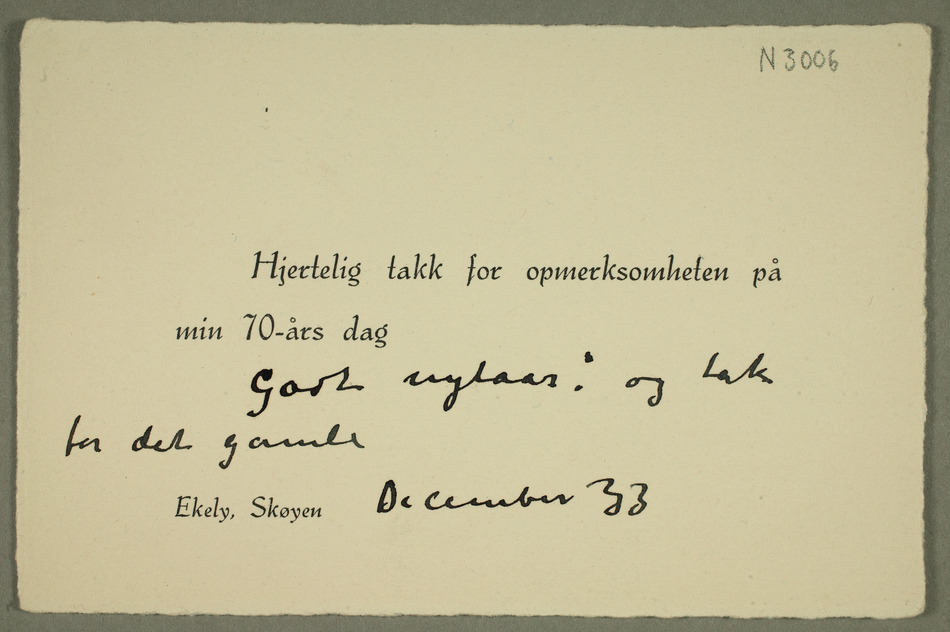 N 3006
Hjertelig takk for opmerksomheten på
min 70-års dag
Godt nytaar! og tak
for det gamle
Ekely, Skøyen December 33